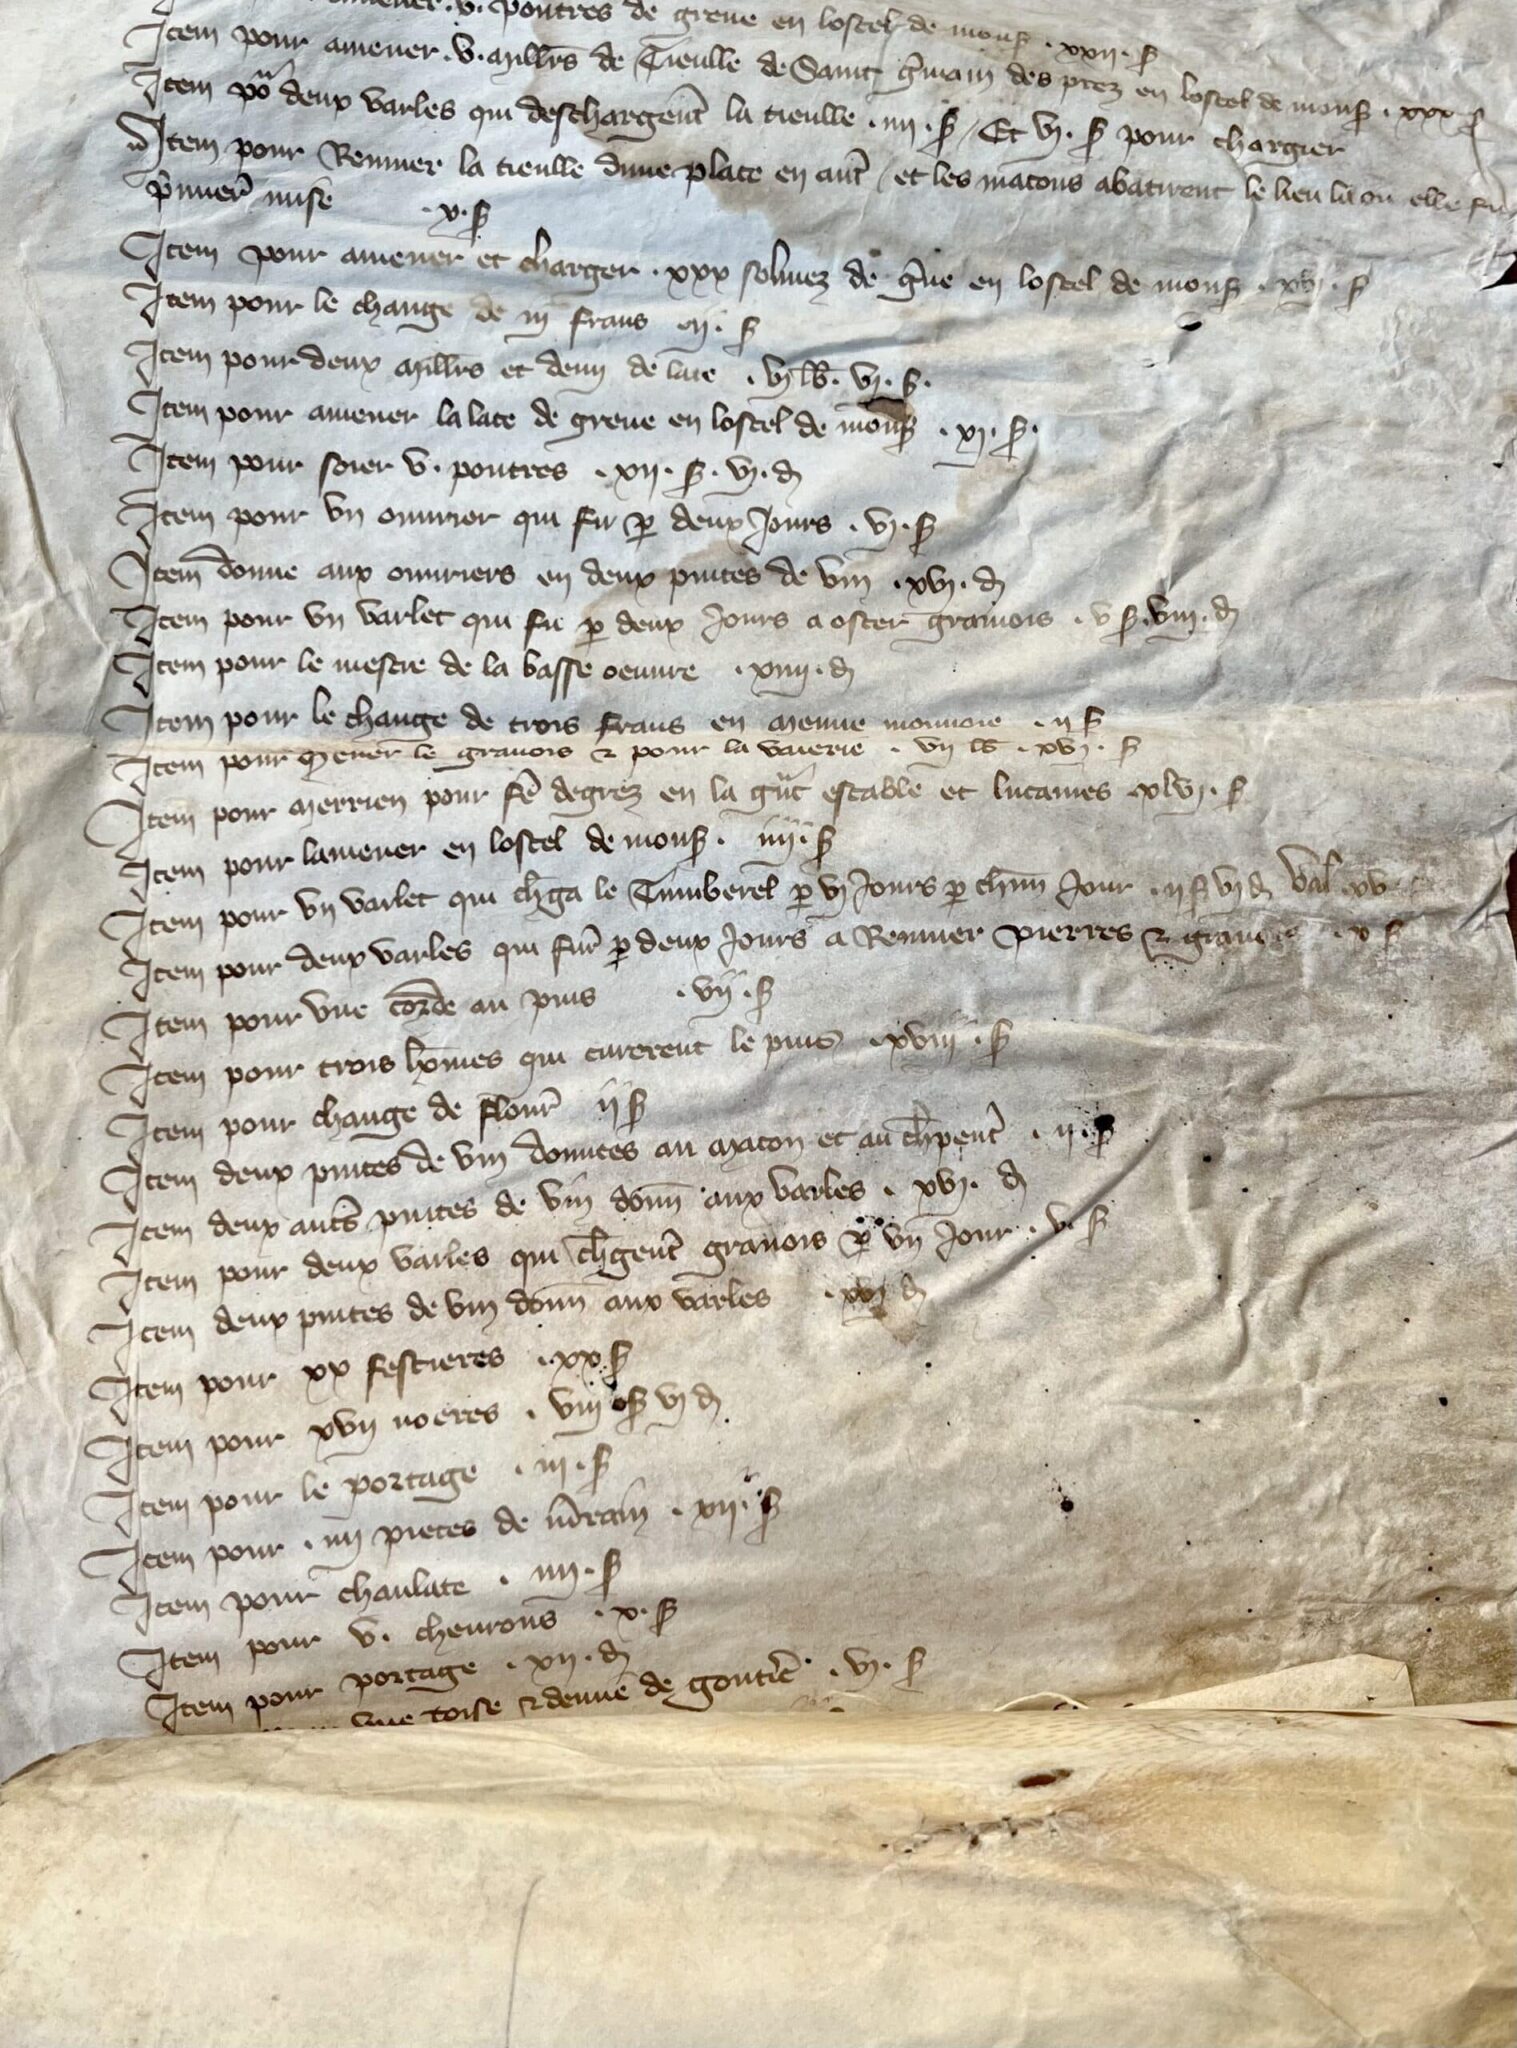 amener . v . poutres de greve en lostel de mons . xxii . s
Item pour amener . v . mill̄rs de Tieulle de Saint Ḡmain des prez en lostel de mons . xxx s
Item po͛ deux varles qui deschargeret̄ la tieulle . iiii . s / Et vi . s pour chargier
Item pour Remuer la tieulle dune place en aut̄ / et les macons abatirent le lieu la ou elle fu
p̄muer̄ mise . v . s
Item pour amener et charger . xxx solivez de ḡve en lostel de mons . xvi . s
Item pour le change de iii frans iii . s
Item pour deux mill̄rs et demi de late . vi lb . vi . s .
Item pour amener la late de greve en lostel de mons . xi . s .
Item pour soier v . poutres . xii . s . vi . d
Item pour un ouvrier qui fu p̱ deux Jours . vi . s
Item donne aux ouvriers en deux pintes de vin . xvi . d
Item pour un varlet qui fu p̱ deux Jours a oster gravois . v s . viii . d
Item pour le mestre de la basse oeuvre . xiiii . d
Item pour le change de trois frans en menue monnoie . ii s
Item pour mener le gravois & pour la vaierie . vii lb . xvi . s
Item pour merrien pour fē degrez en la gāt estable et lucarnes . xlvi . s
Item pour lamener en lostel de mons . iiii . s
Item pour un varlet qui ch̄ga le Timberel p̱ vi Jours p̱ chūn Jour . ii s vi d val . xv
Item pour deux varles qui fur̄ p̱ deux Jours a Remuer pierres & gravois . v s
Item pour une corde au puis . vii . s
Item pour trois hōmes qui curerent le puis . xviii . s
Item pour change de flour̄ ii s
Item deux pintes de vin donnees au macon et au ch̄pent̄ . ii . s
Item deux aut̄s pintes de vin donn̄ aux varles . xvi . d
Item pour deux varles qui ch̄gerēt gravois p̱ un Jour . v . s
Item deux pintes de vin donn̄ aux varles . xvi d
Item pour xx festieres . xx s
Item pour xvii noeres . viii s vi d
Item pour le portage . iii . s
Item pour . iiii pieces de m̄rain . xii . s
Item pour chanlate . iiii . s
Item pour v . chevrons . x . s
Item pour portage . xii . d
une toise & demie de goutie͛ . vi . s